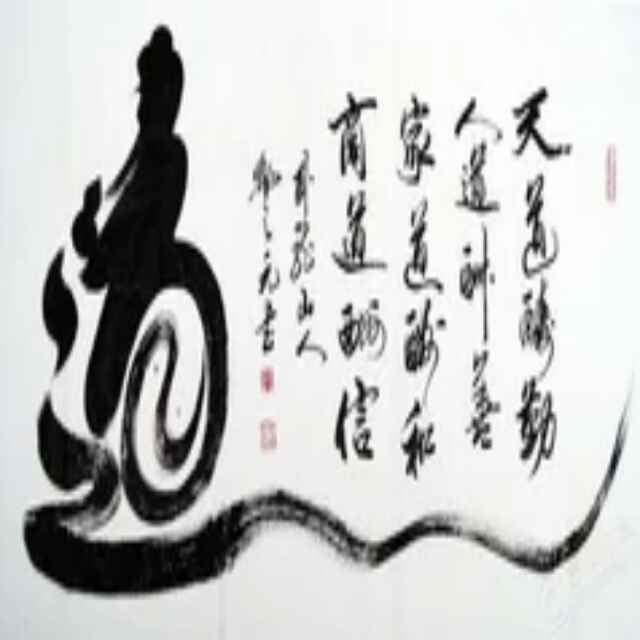 道
天道酬勤
人道酬善
家道酬和
商道酬信
山人